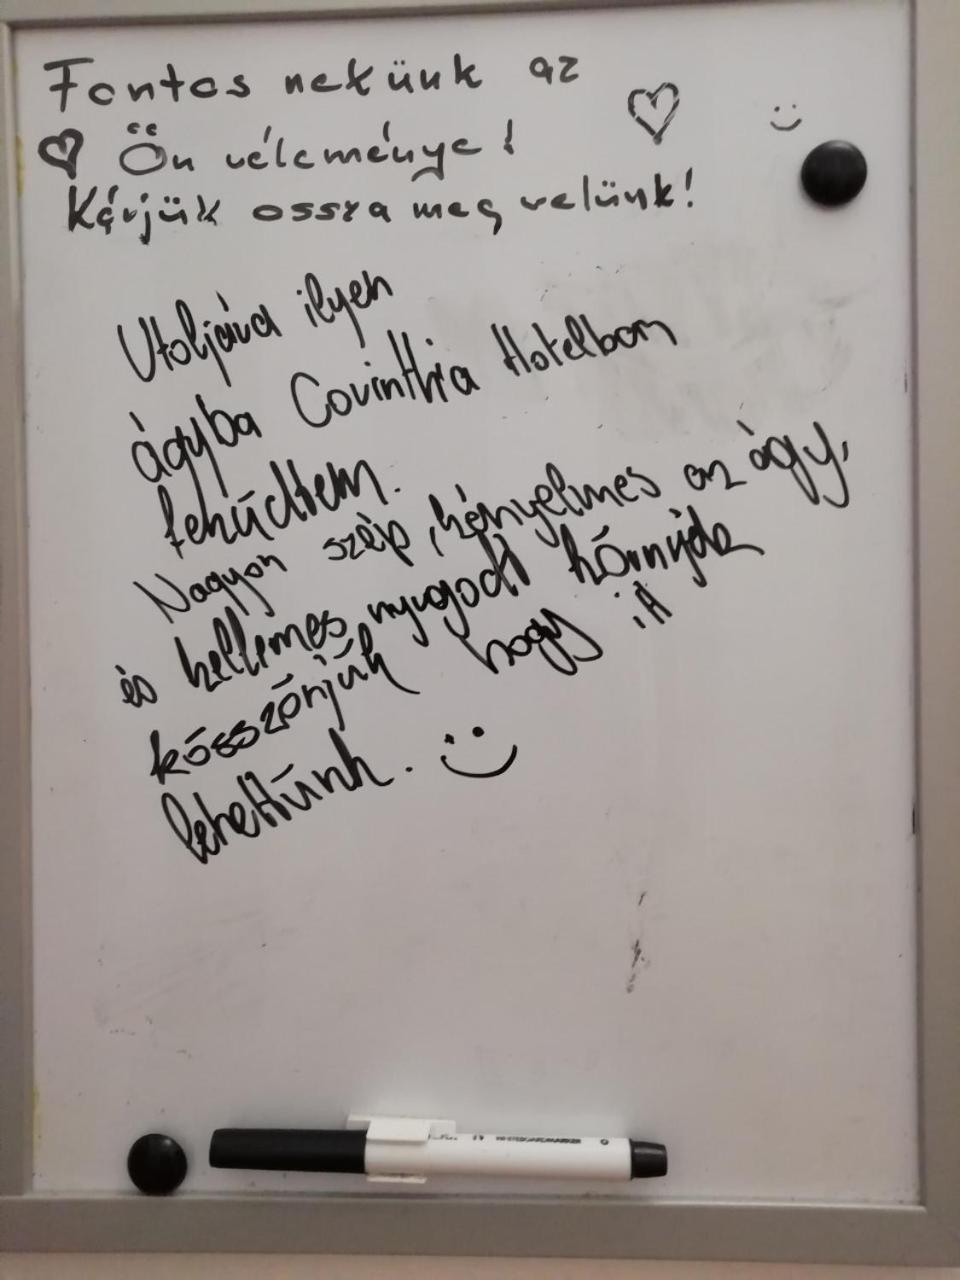 Fontos nekünk az
Ön véleménye!
Kérjük ossza meg velünk!
Utoljára ilyen
ágyba Corinthia Hotelban
feküdtem.
Nagyon szép, kényelmes az ágy,
és kellemes, nyugodt környék
kösszönjük hogy itt
lehettünk.
WHITEBOARDMARKER